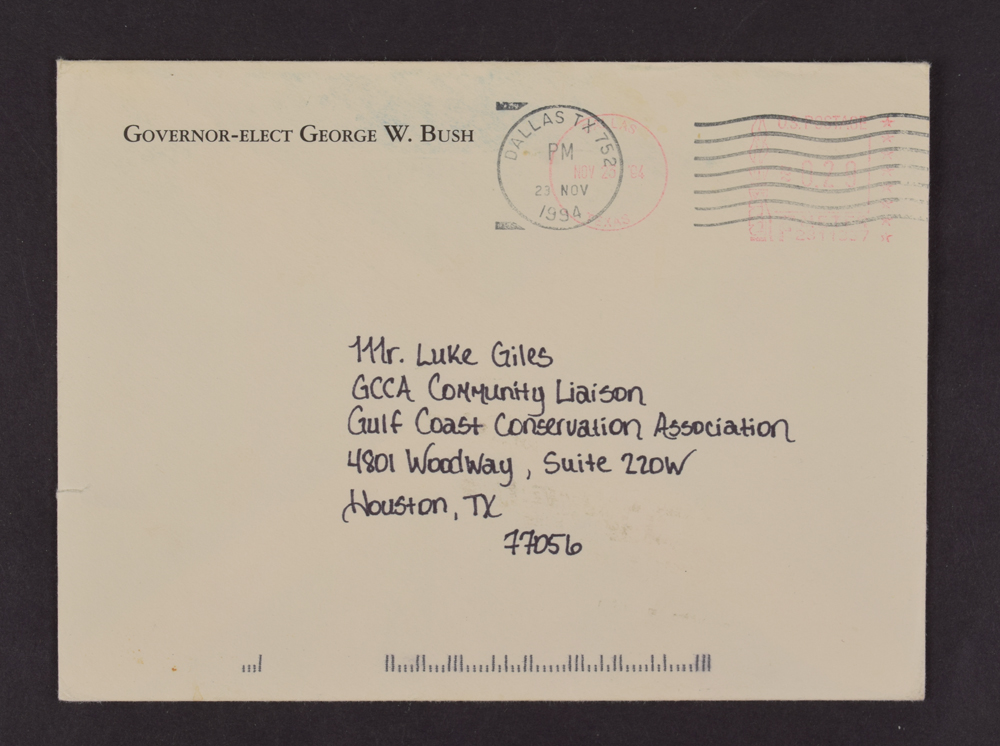 GOVERNOR-ELECT GEORGE W. BUSH
DALLAS TX 752
PM
23 NOV
1994
U.S. POSTAGE
Mr. Luke Giles
GCCA Community Liaison
Gulf Coast Conservation Association
4801 Woodway, Suite 220W
Houston, TX
77056